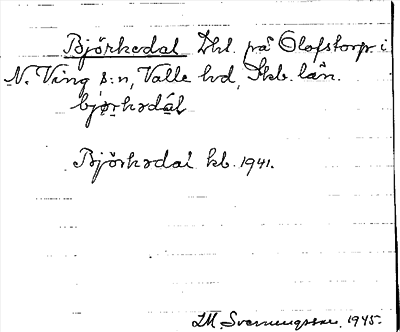 Björkedal Lht. på Olofstorp i
N. Ving s:n, Valle hd, Skb. län.
bjørkədál
Björkedal kb. 1941.
1945.